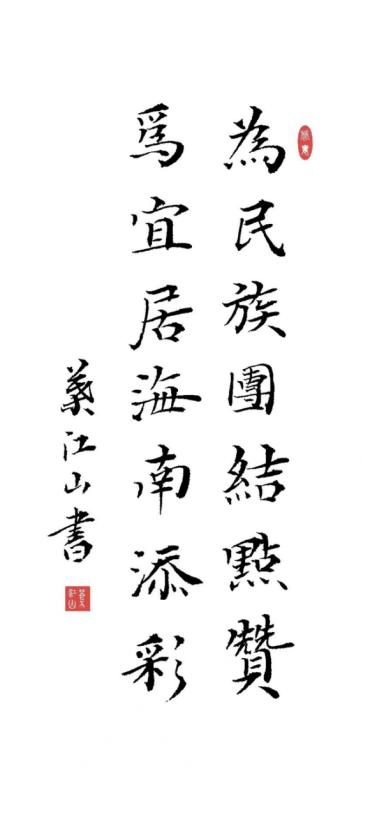 為民族團結點贊
爲宜居海南添彩
葉江山書